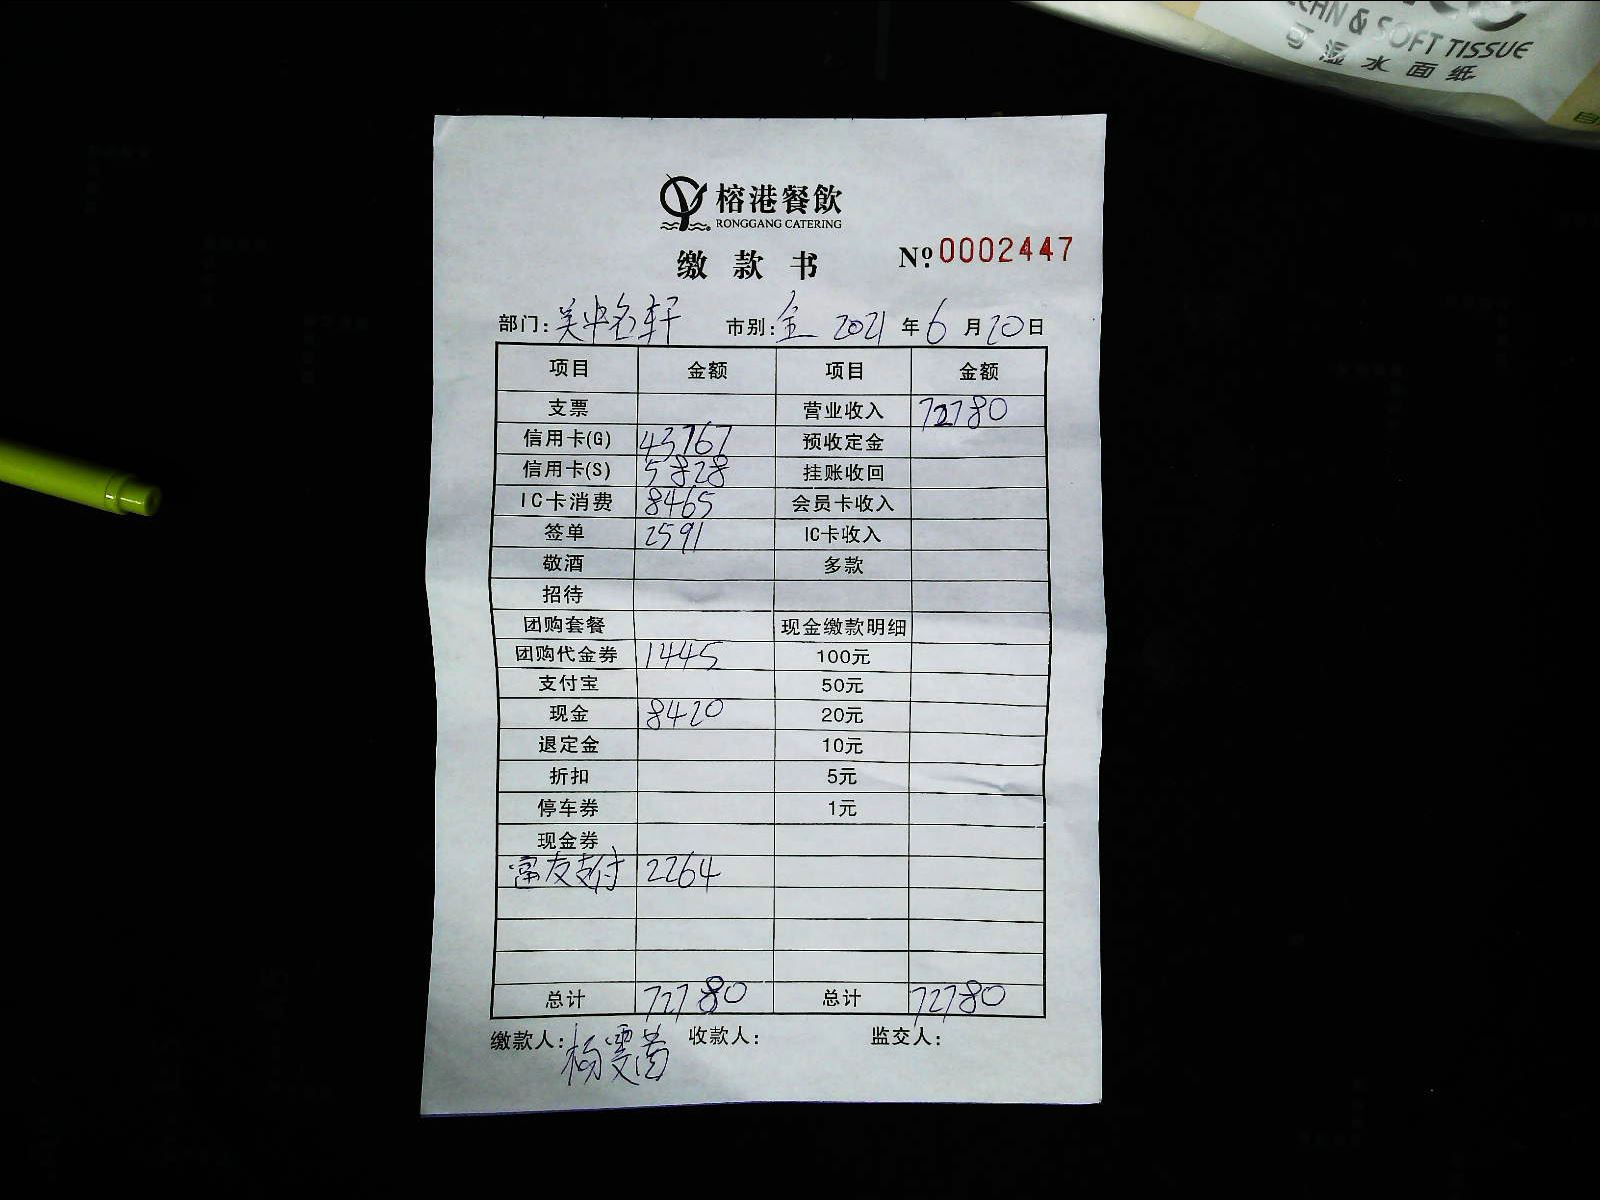 CHN & SOFT TISSUE
可湿水面纸
榕港餐飲
RONGGANG CATERING
缴款书 №0002447
部门: 美中名轩 市别: 全 2021年6月20日
项目 金额 项目 金额
支票 营业收入 72780
信用卡(G) 43767 预收定金
信用卡(S) 5828 挂账收回
IC卡消费 8465 会员卡收入
签单 2591 IC卡收入
敬酒 多款
招待
团购套餐 现金缴款明细
团购代金券 1445 100元
支付宝 50元
现金 8420 20元
退定金 10元
折扣 5元
停车券 1元
现金券
富友支付 2264
总计 72780 总计 72780
缴款人: 杨雯茜 收款人: 监交人: